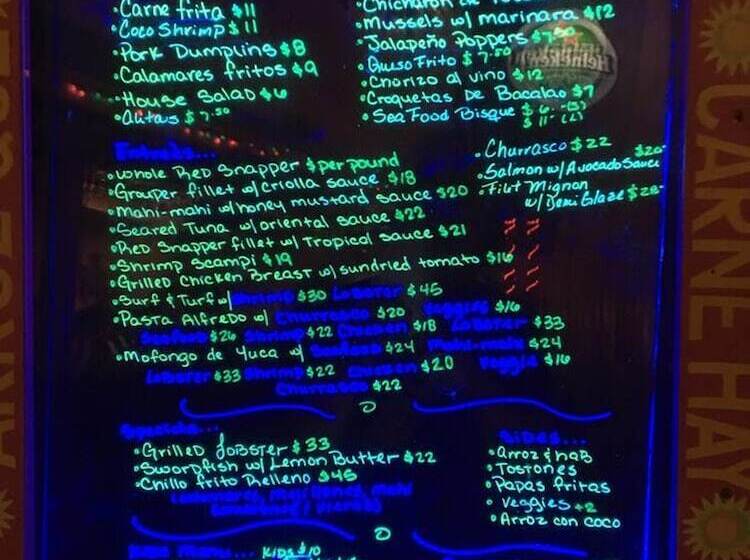 Carne frita $11
Coco Shrimp $11
Pork Dumplins $8
Calamares fritos $9
House Salad $6
Alitas $7.50
Mussels w/ marinara $12
Jalapeño Poppers $7.50
Queso Frito $7.50
Chorizo al vino $12
Croquetas De Bacalao $7
Sea Food Bisque $6-(S)
$11-(L)
Heineken
Entrees...
Whole Red Snapper $ per pound
Grouper fillet w/ criolla sauce $18
Mahi-mahi w/ honey mustard sauce $20
Seared Tuna w/ oriental sauce $22
Red Snapper fillet w/ Tropical sauce $21
Shrimp Scampi $19
Grilled Chicken Breast w/ sundried tomato $16
Surf & Turf w/ Shrimp $30 Lobster $45
Pasta Alfredo w/ Churrasco $20 Veggies $16
Seafood $26 Shrimp $22 Chicken $18 Lobster $33
Mofongo de Yuca w/ Seafood $24 Mahi-mahi $24
Lobster $33 Shrimp $22 Chicken $20 Veggie $16
Churrasco $22
Churrasco $22
Salmon w/ Avocado Sauce $20
Filet Mignon
w/ Demi Glaze $28
Specials...
Grilled Lobster $33
Swordfish w/ Lemon Butter $22
Chillo frito Relleno $45
Sides...
Arroz & hab
Tostones
Papas fritas
Veggies +2
Arroz con coco
Kids Menu... Kids $10
CARNE HAY